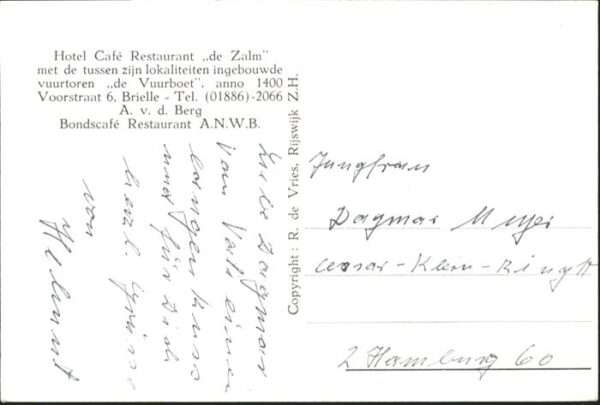 Hotel Café Restaurant „de Zalm"
met de tussen zijn lokaliteiten ingebouwde
vuurtoren „de Vuurboet", anno 1400
Voorstraat 6, Brielle - Tel. (01886)-2066
A. v. d. Berg
Bondscafé Restaurant A.N.W.B.
Copyright: R. de Vries, Rijswijk Z.H.
Liebe Dagmar
Vom Vati einen
langen Kuss
nur für Dich
herzl. Grüsse
von
Helmut
Jungfrau
Dagmar Meyer
Cesar-Klein-Ring
2 Hamburg 60